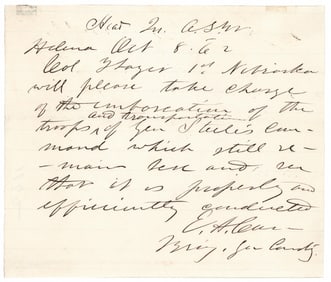 Head Qu. A.S.W.
Helena Oct 8. 62
Col. Thayer 1st Nebraska
will please take charge
of the imbarcation of the
and transportation
troops, of Gen Steele's com-
mand which still re-
-main here and see
that it is properly and
efficiently conducted
E. A. Carr
Brig. Gen Comdg.